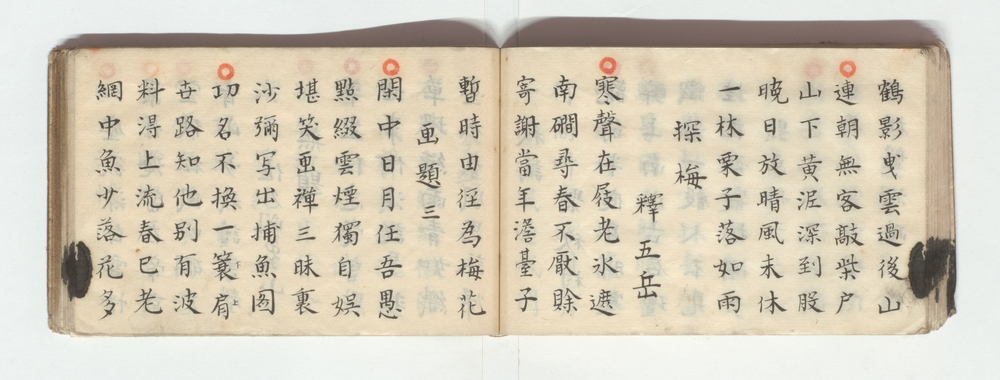 鶴影曳雲過後山
連朝無客敲柴戶
山下黄泥深到股
晩日放晴風未休
一林栗子落如雨
探梅
釋五岳
寒聲在屐老氷遮
南磵尋春不厭賖
寄謝當年澹臺子
暫時由徑為梅花
画題三
閑中日月任吾愚
點綴雲煙獨自娯
堪笑画禪三昧裏
沙彌写出捕魚图
功名不換一蓑肩
世路知他別有波
料得上流春已老
網中魚少落花多